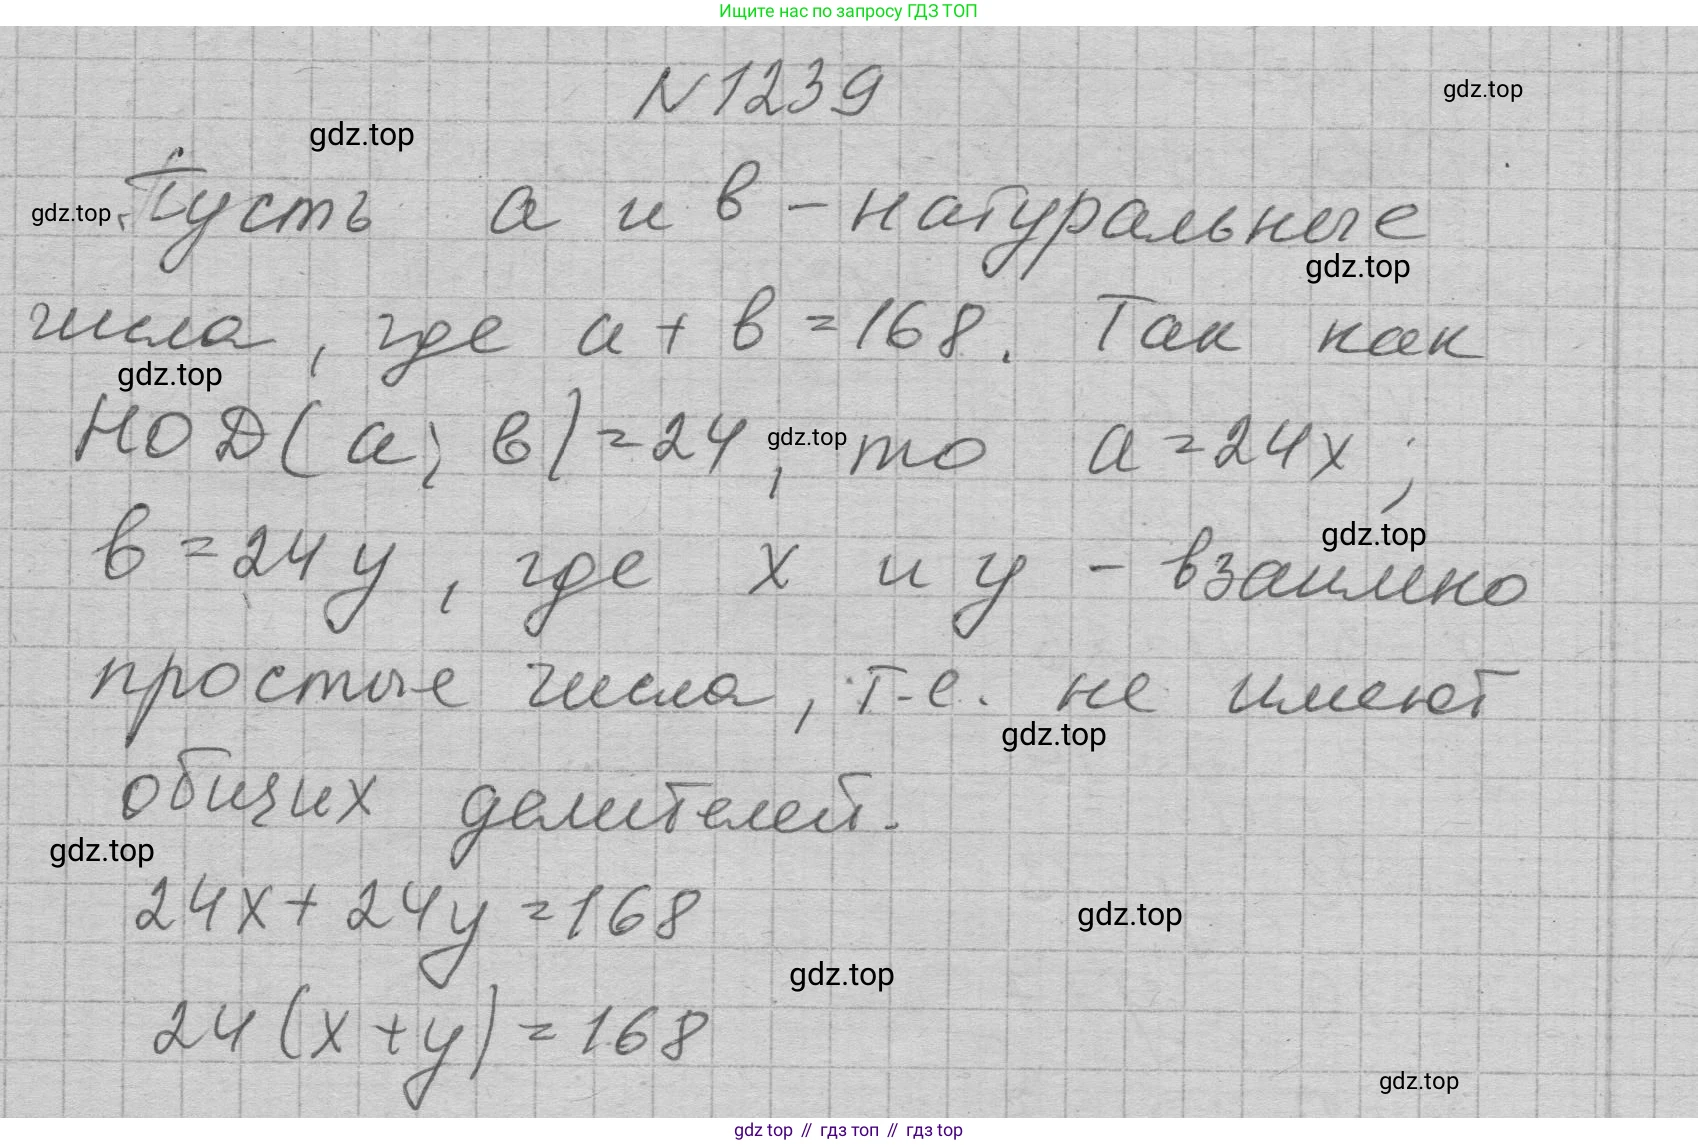 Ищите нас по запросу ГДЗ ТОП
N1239
gdz.top
gdz.top
Пусть a и b - натуральные
gdz.top
gdz.top
числа, где a + b = 168. Так как
gdz.top
НОД(a; b) = 24, то a = 24x;
gdz.top
b = 24y, где x и y - взаимно
gdz.top
простые числа, т.е. не имеют
gdz.top
общих делителей.
gdz.top
24x + 24y = 168
gdz.top
gdz.top
24(x + y) = 168
gdz.top
gdz top // гдз топ // гдз top